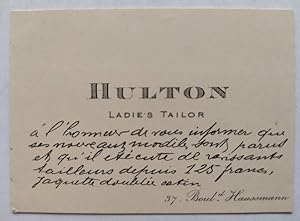 HULTON
LADIE'S TAILOR
à l'honneur de vous informer que
ses nouveaux modèles sont parus
et qu'il exécute de ravissants
tailleurs depuis 125 francs,
jaquette doublée satin
37. Boul.d Haussmann